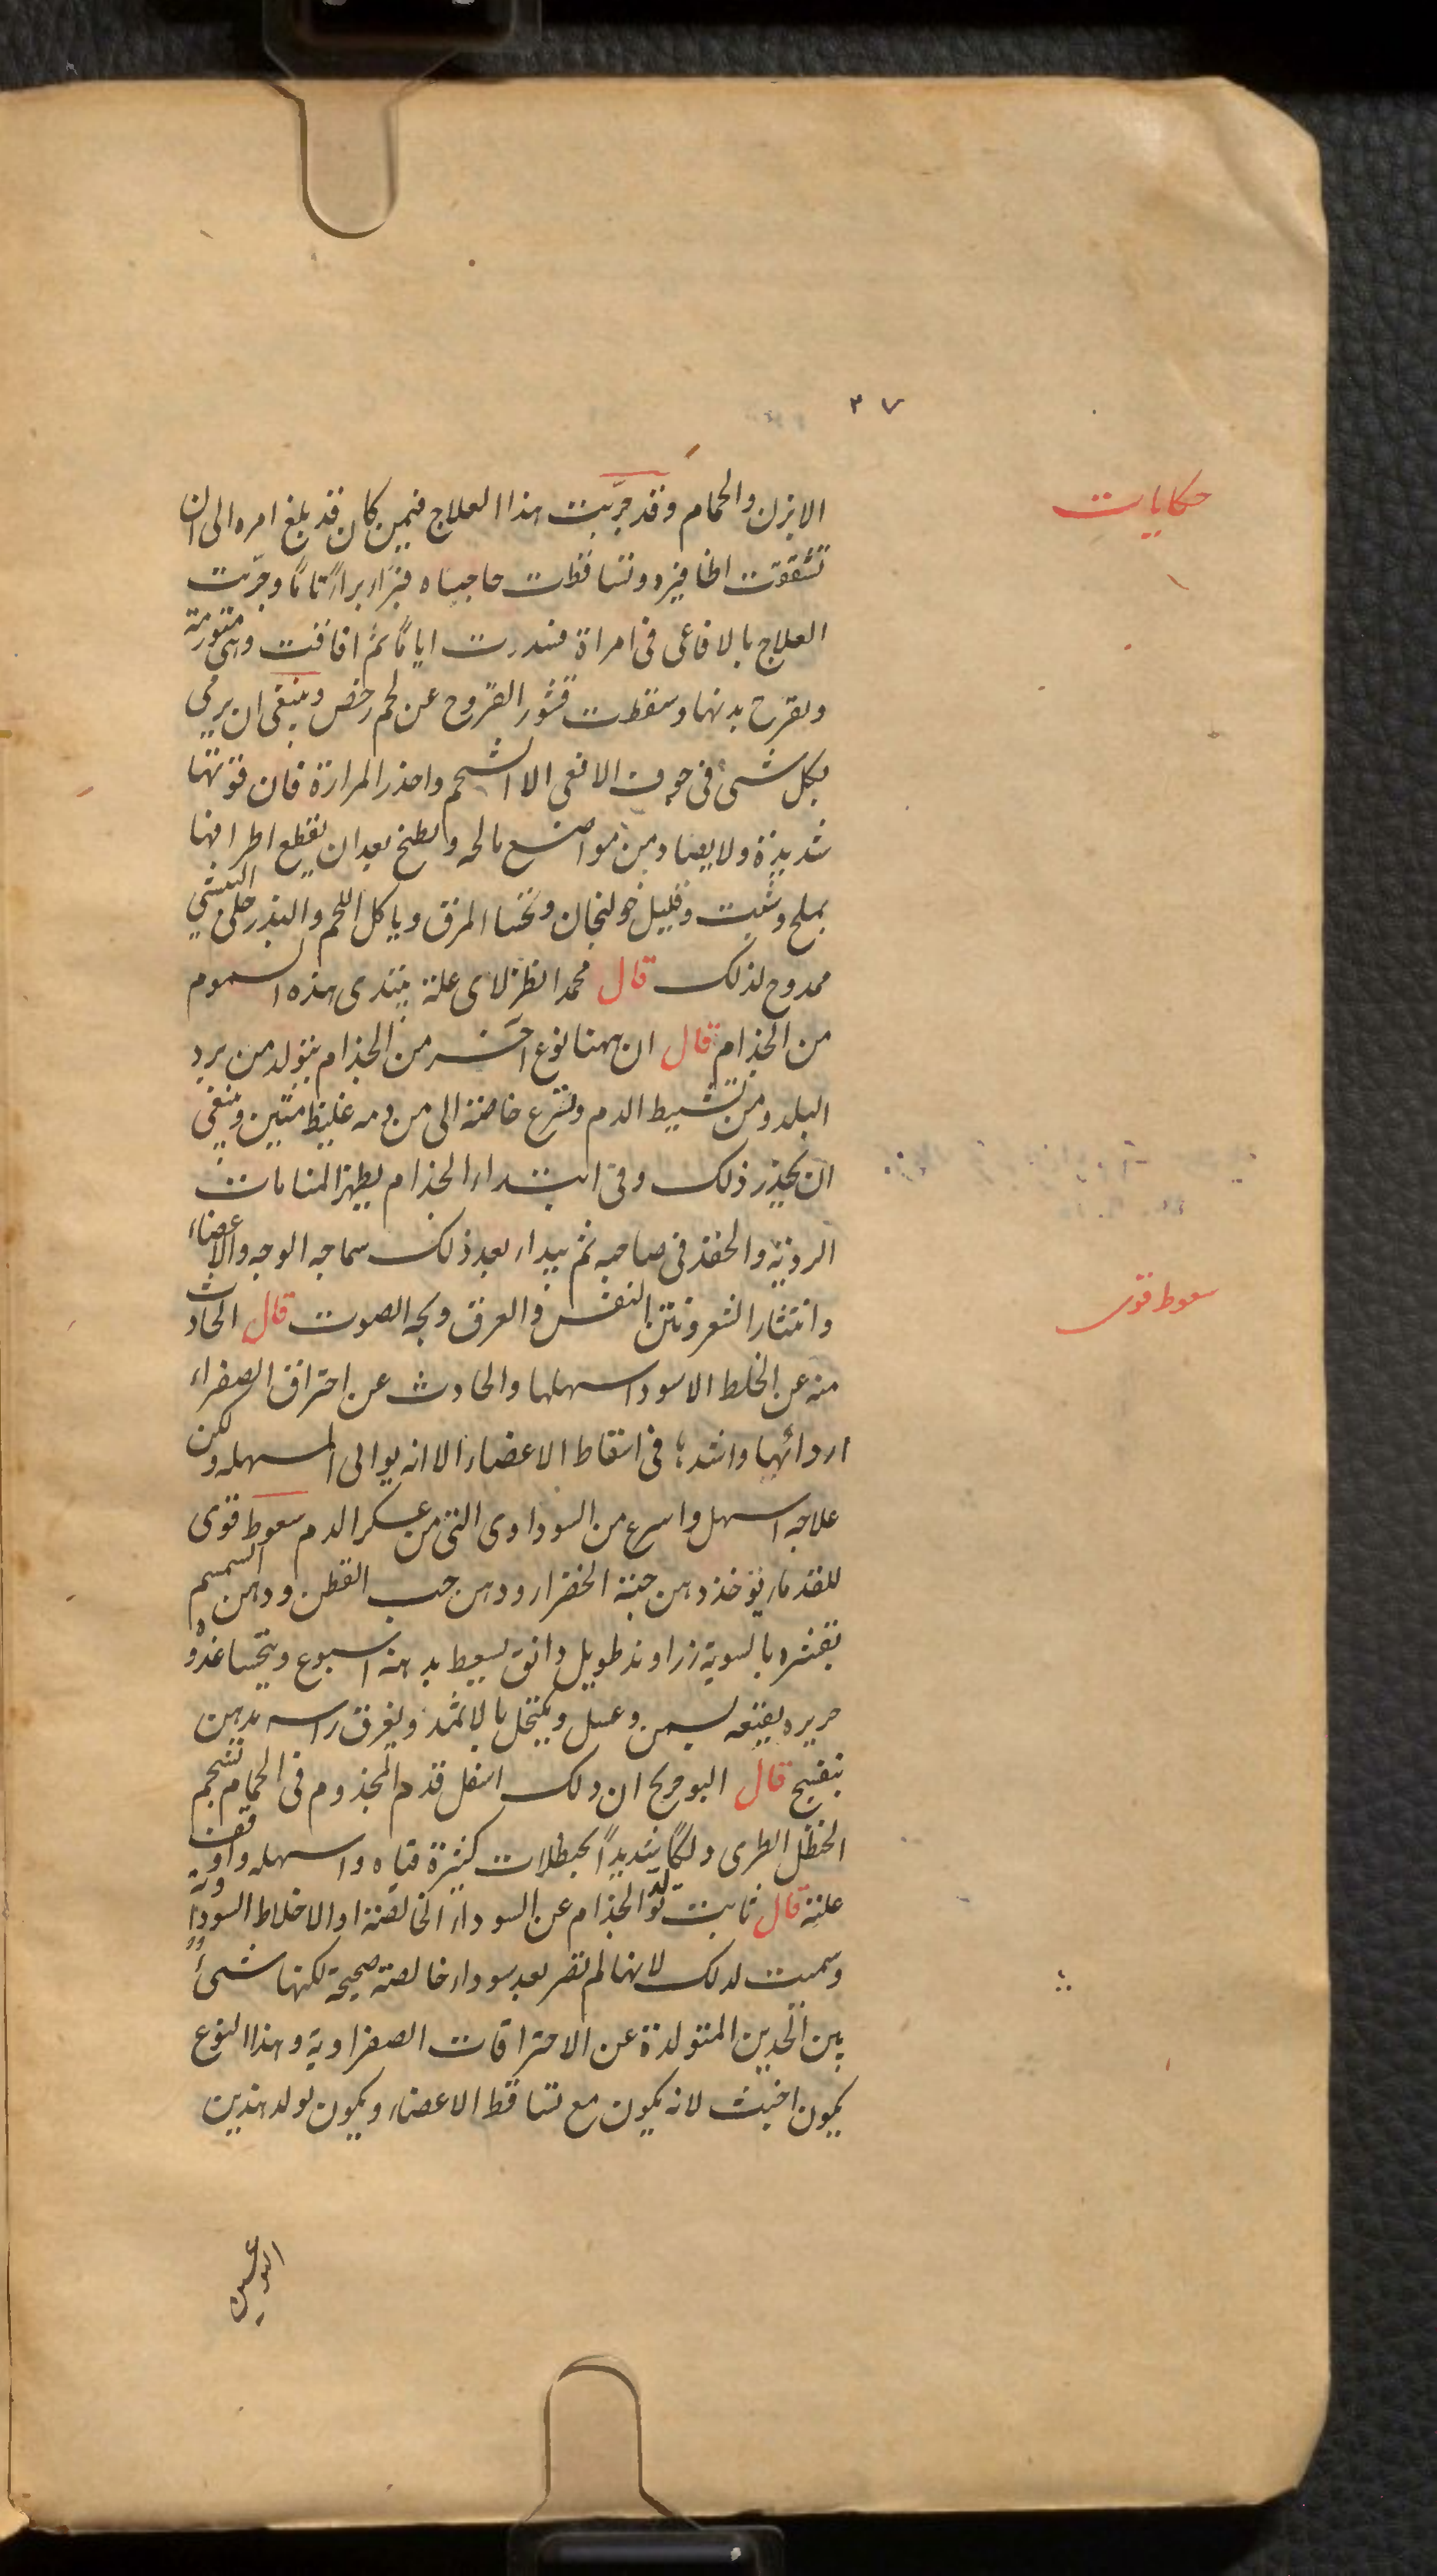 ٣٧
حكايات
الابزن والحمام وقد جرّبت هذا العلاج فيمن كان قد بلغ امره الى ان
تشققت اظافيره وتساقطت حاجباه فبراء براءً تاماً وجرّبت
العلاج بالافاعى فى امراة فسدرت اياماً ثم افاقت وهى متورمة
وتقرح بدنها وسقطت قشور القروح عن لحم رخص وينبغى ان يرمى
بكل شىء فى جوف الافعى الا الشحم واحذر المرارة فان قوتها
شديدة ولا يصاد من مواضع مالحه ويطبخ بعد ان يقطع اطرافها
بملح وشبت وقليل خولنجان وتحسا المرق وياكل اللحم والبذر حلى البيشى
ممدوح لذلك قال محمد انظر لاى علة يبتدى هذه السموم
من الجذام قال ان ههنا نوع اخر من الجذام يتولد من برد
البلد ومن تشييط الدم ويسرع خاصة الى من دمه غليظ متين وينبغى
ان يحذر ذلك وفى ابتداء الجذام يظهر المنامات
الردية والحقد فى صاحبه ثم يبداء بعد ذلك سماجه الوجه والاعضاء
وانتثار الشعر ونتن النفس والعرق وبحه الصوت قال الحادث
منه عن الخلط الاسود اسهلها والحادث عن احتراق الصفراء
اردائها واشدها فى اسقاط الاعضاء الا انه يوالى المسهله ولكن
سعوط قوى
علاجه اسهل واسرع من السوداوى التى من عسكر الدم سعوط قوى
للقدماء يؤخذ دهن حبة الخضراء ودهن حب القطن ودهن السمسم
بقشره بالسوية زراوند طويل دانق يسعط به منه اسبوع ويتحسا غدوه
حريره بقيعه بسمن وعسل ويكتحل بالاثمد ويغرق راسه بدهن
بنفسج قال ابو جريح ان دلك اسفل قدم المجذوم فى الحمام بشحم
الحنظل الطرى دلكاً شديداً بحنظلات كثيرة قياه واسهله واوقف
علته قال ثابت تولد الجذام عن السوداء الخالصة او الاخلاط السوداوية
وسميت لذلك لانها لم تصر بعد سوداء خالصة صحيحة لكنها شىءٌ
بين الحدين المتولدة عن الاحتراقات الصفراوية وهذا النوع
يكون اخبث لانه يكون مع تساقط الاعضاء ويكون تولد هذين